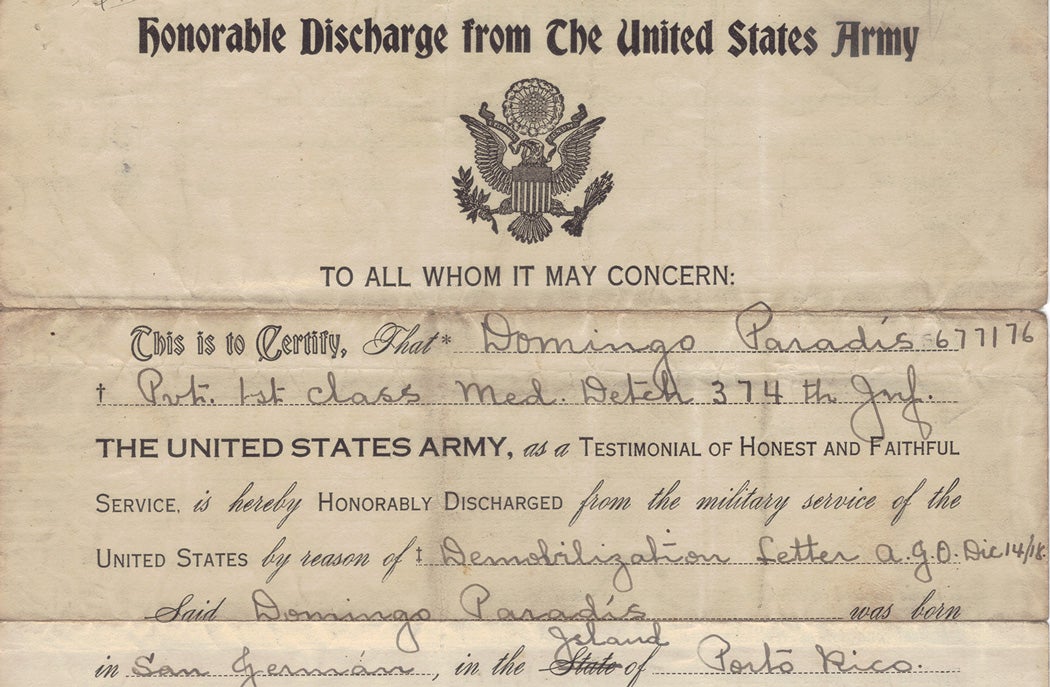 Honorable Discharge from The United States Army
TO ALL WHOM IT MAY CONCERN:
This is to Certify, That* Domingo Paradís 677176
† Pvt. 1st class Med. Detch 374 th Inf.
THE UNITED STATES ARMY, as a TESTIMONIAL OF HONEST AND FAITHFUL
SERVICE, is hereby HONORABLY DISCHARGED from the military service of the
UNITED STATES by reason of ‡ Demobilization Letter A.G.O. Dic 14/18.
Said Domingo Paradís was born
Island
in San Germán, in the State of Porto Rico.